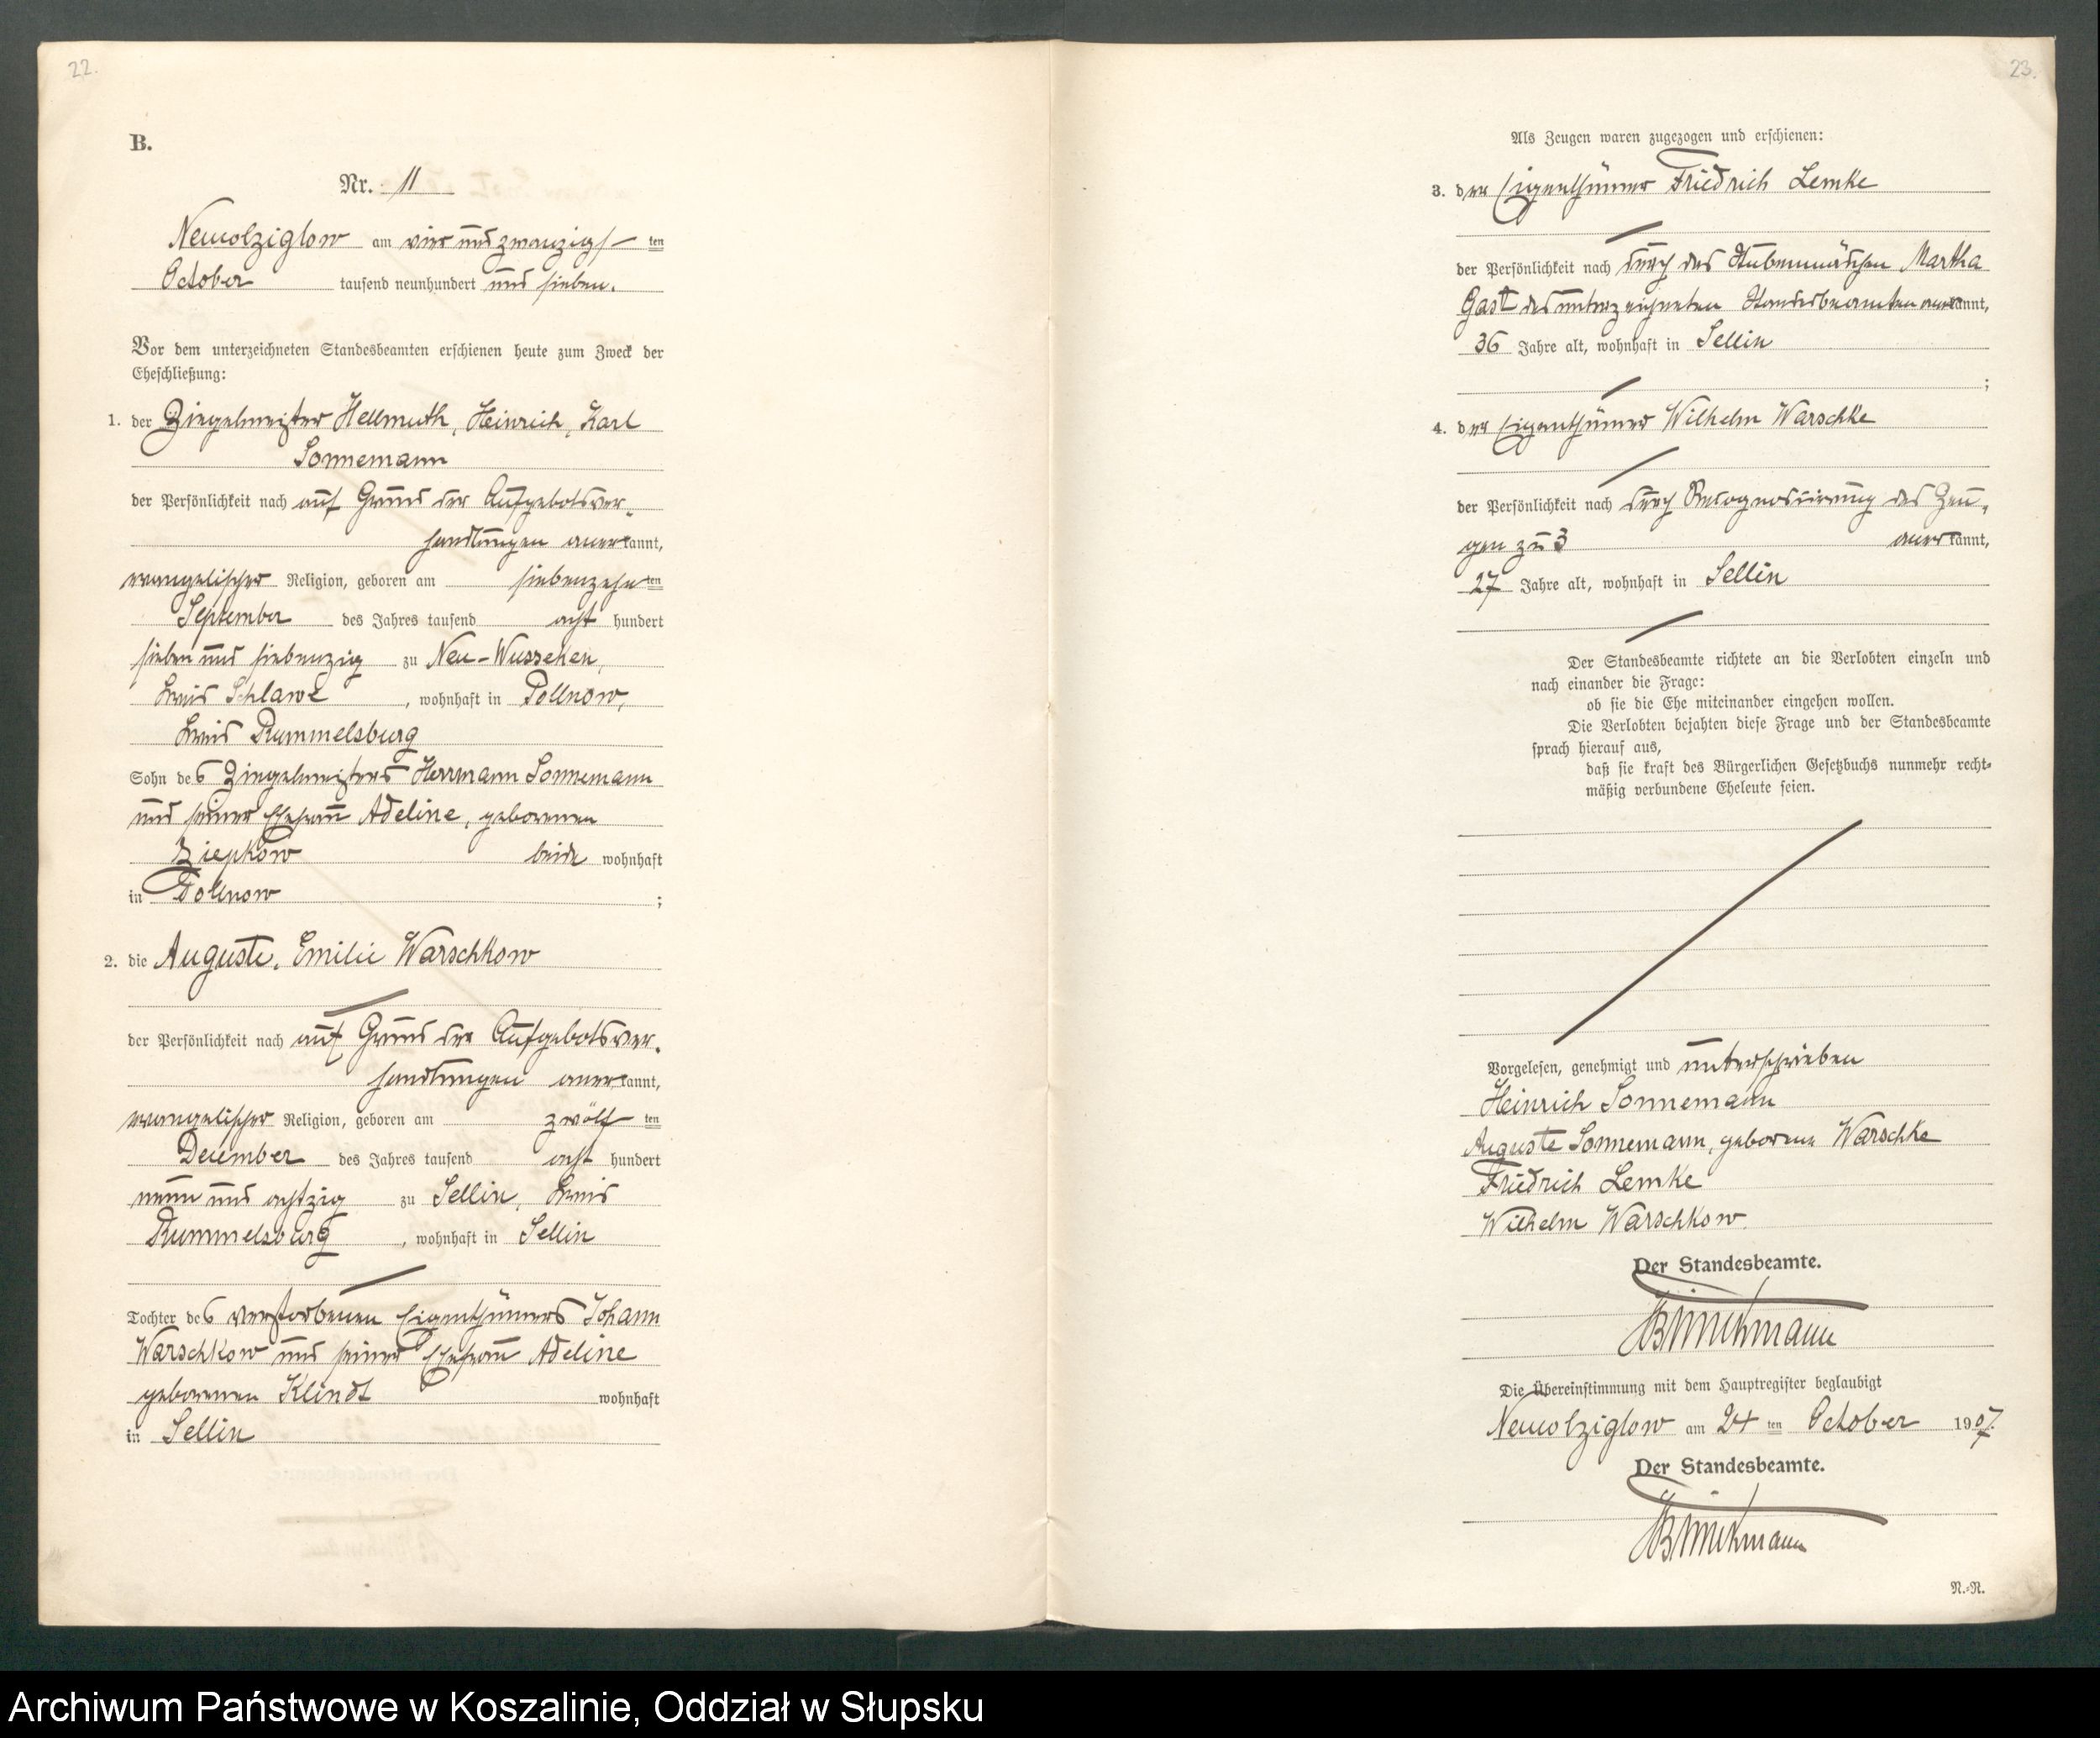 22.
B.
Nr. 11
Newolziglow am vier und zwanzigs ten
October tausend neunhundert und sieben.
Vor dem unterzeichneten Standesbeamten erschienen heute zum Zweck der
Eheschließung:
1. der Ziegelmeister Hellmuth, Heinrich, Karl
Sonnemann
der Persönlichkeit nach auf Grund der Aufgebotsver-
handlungen anerkannt,
evangelischer Religion, geboren am siebenzehn ten
September des Jahres tausend acht hundert
sieben und siebenzig zu Neu-Wusseken,
Kreis Schlawe, wohnhaft in Pollnow,
Kreis Rummelsburg
Sohn des Ziegelmeisters Herrmann Sonnemann
und seiner Ehefrau Adeline, geborenen
Ziepkow beide wohnhaft
in Pollnow ;
2. die Auguste, Emilie Warschkow
der Persönlichkeit nach auf Grund der Aufgebotsver-
handlungen anerkannt,
evangelischer Religion, geboren am zwölf ten
December des Jahres tausend acht hundert
neun und achtzig zu Sellin, Kreis
Rummelsburg, wohnhaft in Sellin
Tochter des verstorbenen Eigenthümers Johann
Warschkow und seiner Ehefrau Adeline
geborenen Klindt wohnhaft
in Sellin
23.
Als Zeugen waren zugezogen und erschienen:
3. der Eigenthümer Friedrich Lemke
der Persönlichkeit nach durch das Stubenmädchen Martha
Gast des unterzeichneten Standesbeamten anerkannt,
36 Jahre alt, wohnhaft in Sellin
;
4. der Eigenthümer Wilhelm Warschke
der Persönlichkeit nach durch Recognoscirung des Zeu-
gen zu 3 anerkannt,
27 Jahre alt, wohnhaft in Sellin
Der Standesbeamte richtete an die Verlobten einzeln und
nach einander die Frage:
ob sie die Ehe miteinander eingehen wollen.
Die Verlobten bejahten diese Frage und der Standesbeamte
sprach hierauf aus,
daß sie kraft des Bürgerlichen Gesetzbuchs nunmehr recht-
mäßig verbundene Eheleute seien.
Vorgelesen, genehmigt und unterschrieben
Heinrich Sonnemann
Auguste Sonnemann, geborene Warschke
Friedrich Lemke
Wilhelm Warschkow.
Der Standesbeamte.
Die Übereinstimmung mit dem Hauptregister beglaubigt
Newolziglow am 24 ten October 1907.
Der Standesbeamte.
N.-R.
Archiwum Państwowe w Koszalinie, Oddział w Słupsku